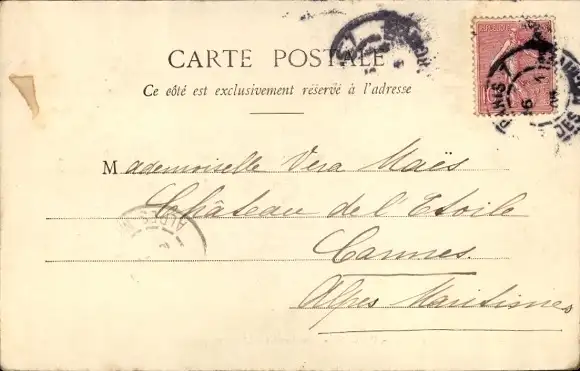 CARTE POSTALE
Ce côté est exclusivement réservé à l'adresse
Mademoiselle Vera Maës
Château de l'Etoile
Cannes.
Alpes Maritimes
PARIS